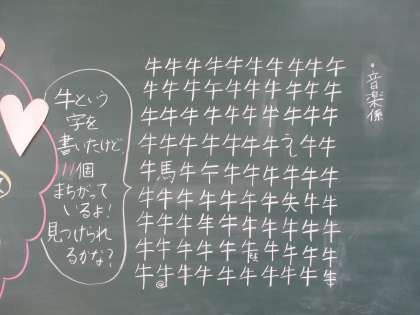 ・音楽係
牛という
字を
書いたけど、
11個
まちがって
いるよ!
見つけられ
るかな?
牛牛牛牛牛牛牛牛牛午
牛牛牛午牛牛牛牛牛牛
牛牛牛牛牛牛牛牛牛牛
牛牛牛牛牛牛牛うし牛牛
牛馬牛午牛牛牛牛牛牛
牛牛牛牛牛牛牛矢牛牛
牛牛牛牛牛牛牛牛牛牛
牛牛牛牛牛牛牛牛牛
牛牛牛牛牛牛牛牛